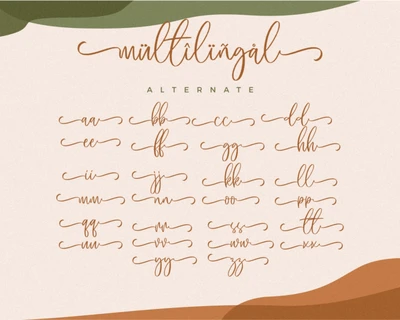 mültîlïñgàl
ALTERNATE
aa bb cc dd
ee ff gg hh
ii jj kk ll
mm nn oo pp
qq rr ss tt
uu vv ww xx
yy zz